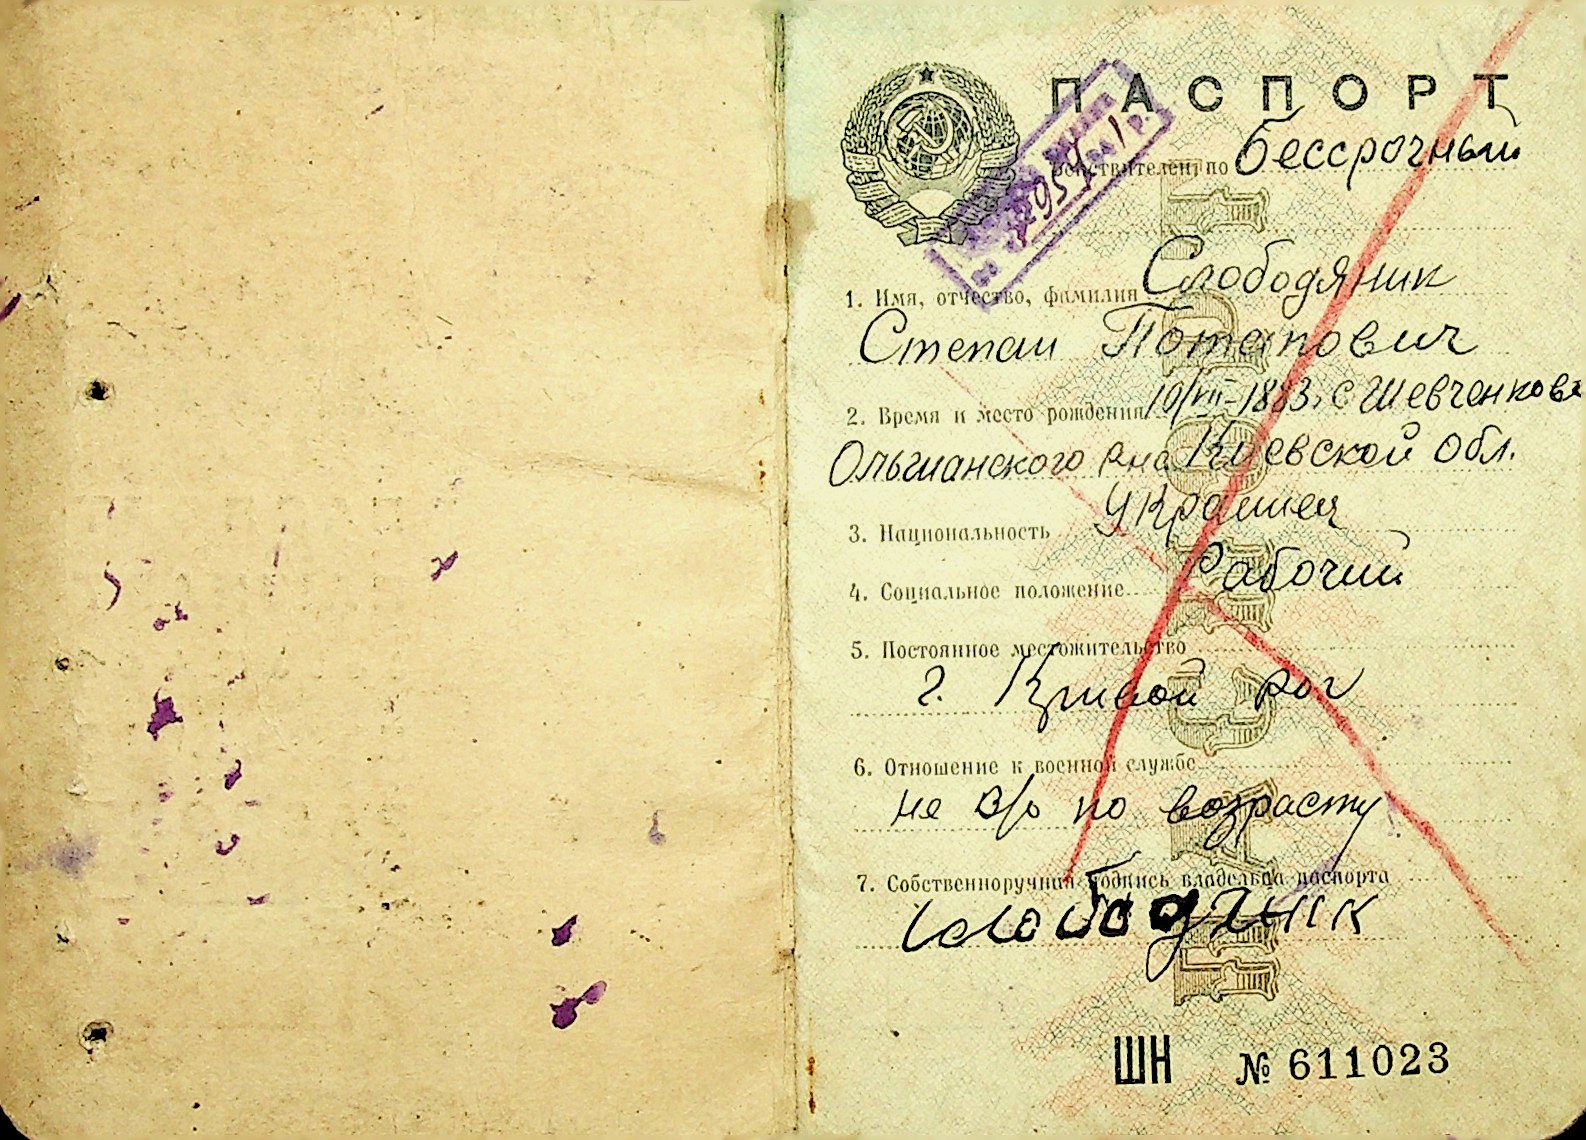 ПАСПОРТ
Действителен по Бессрочный
1957 г.
1. Имя, отчество, фамилия Слободяник
Степан Потапович
2. Время и место рождения 19/VII-1883. с Шевченкове
Ольшанского р-на Киевской обл.
3. Национальность Украинец
4. Социальное положение Рабочий
5. Постоянное местожительство
г. Кривой Рог
6. Отношение к военной службе
не в/о по возрасту
7. Собственноручная подпись владельца паспорта
Слободяник
ШН № 611023
ПАСПОРТ